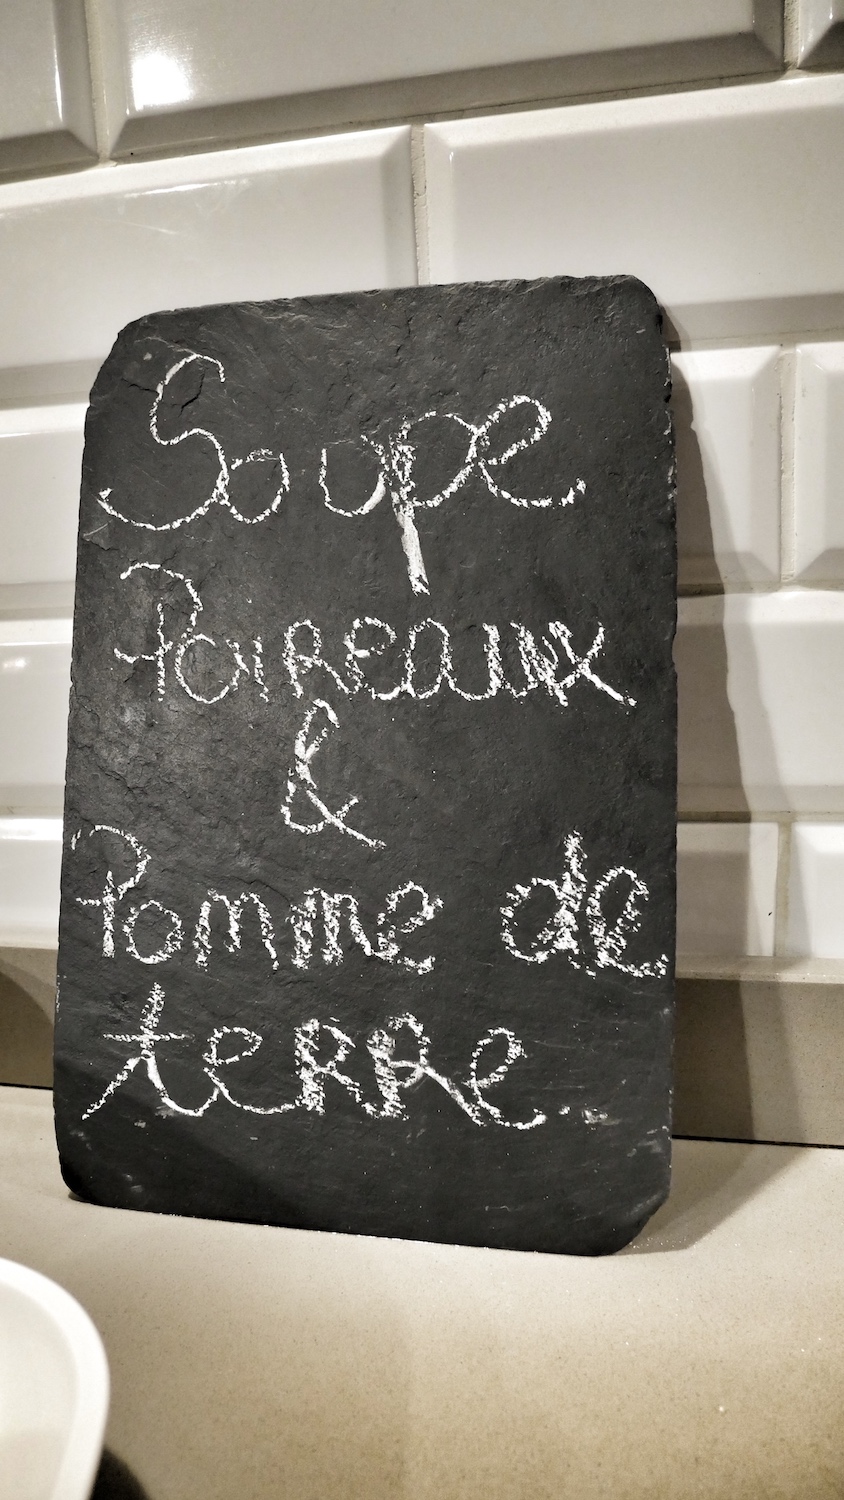 Soupe
Poireaux
&
Pomme de
terre